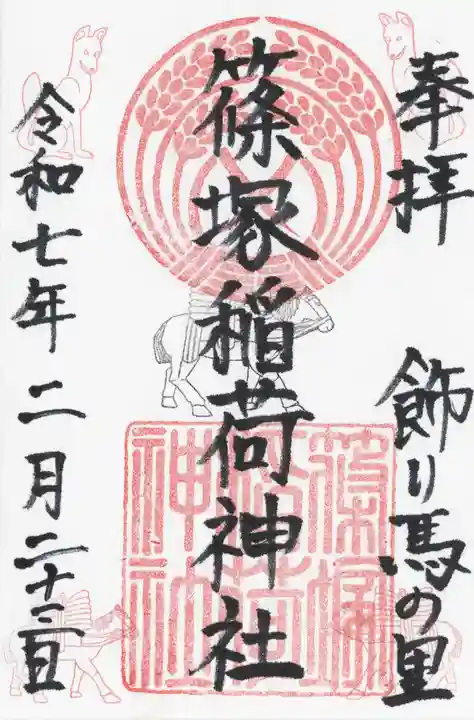 奉拝
飾り馬の里
篠塚稲荷神社
篠塚
稲荷
神社
令和七年二月二十三日